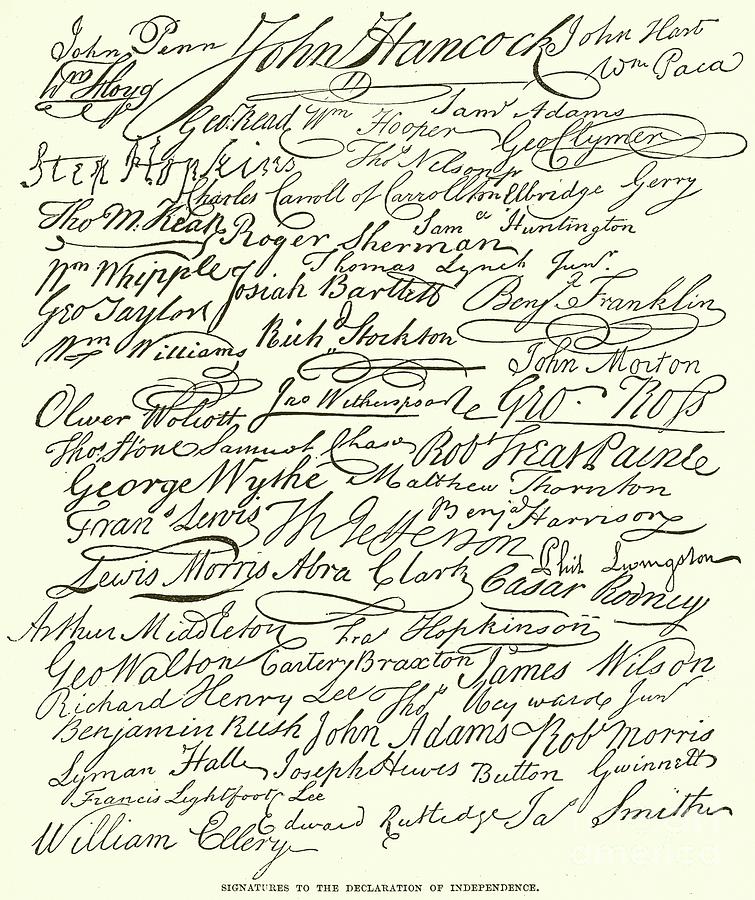 John Penn John Hancock John Hart
Wm Floyd Wm Paca
Saml Adams
Geo. Read Wm Hooper Geo Clymer
Step Hopkins Thos Nelson jr
Charles Carroll of Carrollton Elbridge Gerry
Tho M. Kean Roger Sherman Saml Huntington
Wm Whipple Thomas Lynch Junr.
Josiah Bartlett Benja Franklin
Geo Taylor
Wm Williams Richd Stockton
John Morton
Oliver Wolcott Jno Witherspoon Geo. Ross
Thos. Stone Samuel Chase Robt Treat Paine
George Wythe Matthew Thornton
Frans Lewis Th Jefferson Benja Harrison
Lewis Morris Abra Clark Phil. Livingston
Cæsar Rodney
Arthur Middleton Fras Hopkinson
Geo Walton Carter Braxton James Wilson
Richard Henry Lee Thos Heyward Junr
Benjamin Rush John Adams Robt Morris
Lyman Hall Joseph Hewes Button Gwinnett
Francis Lightfoot Lee
William Ellery Edward Rutledge Jas Smith
SIGNATURES TO THE DECLARATION OF INDEPENDENCE.
fine art
america